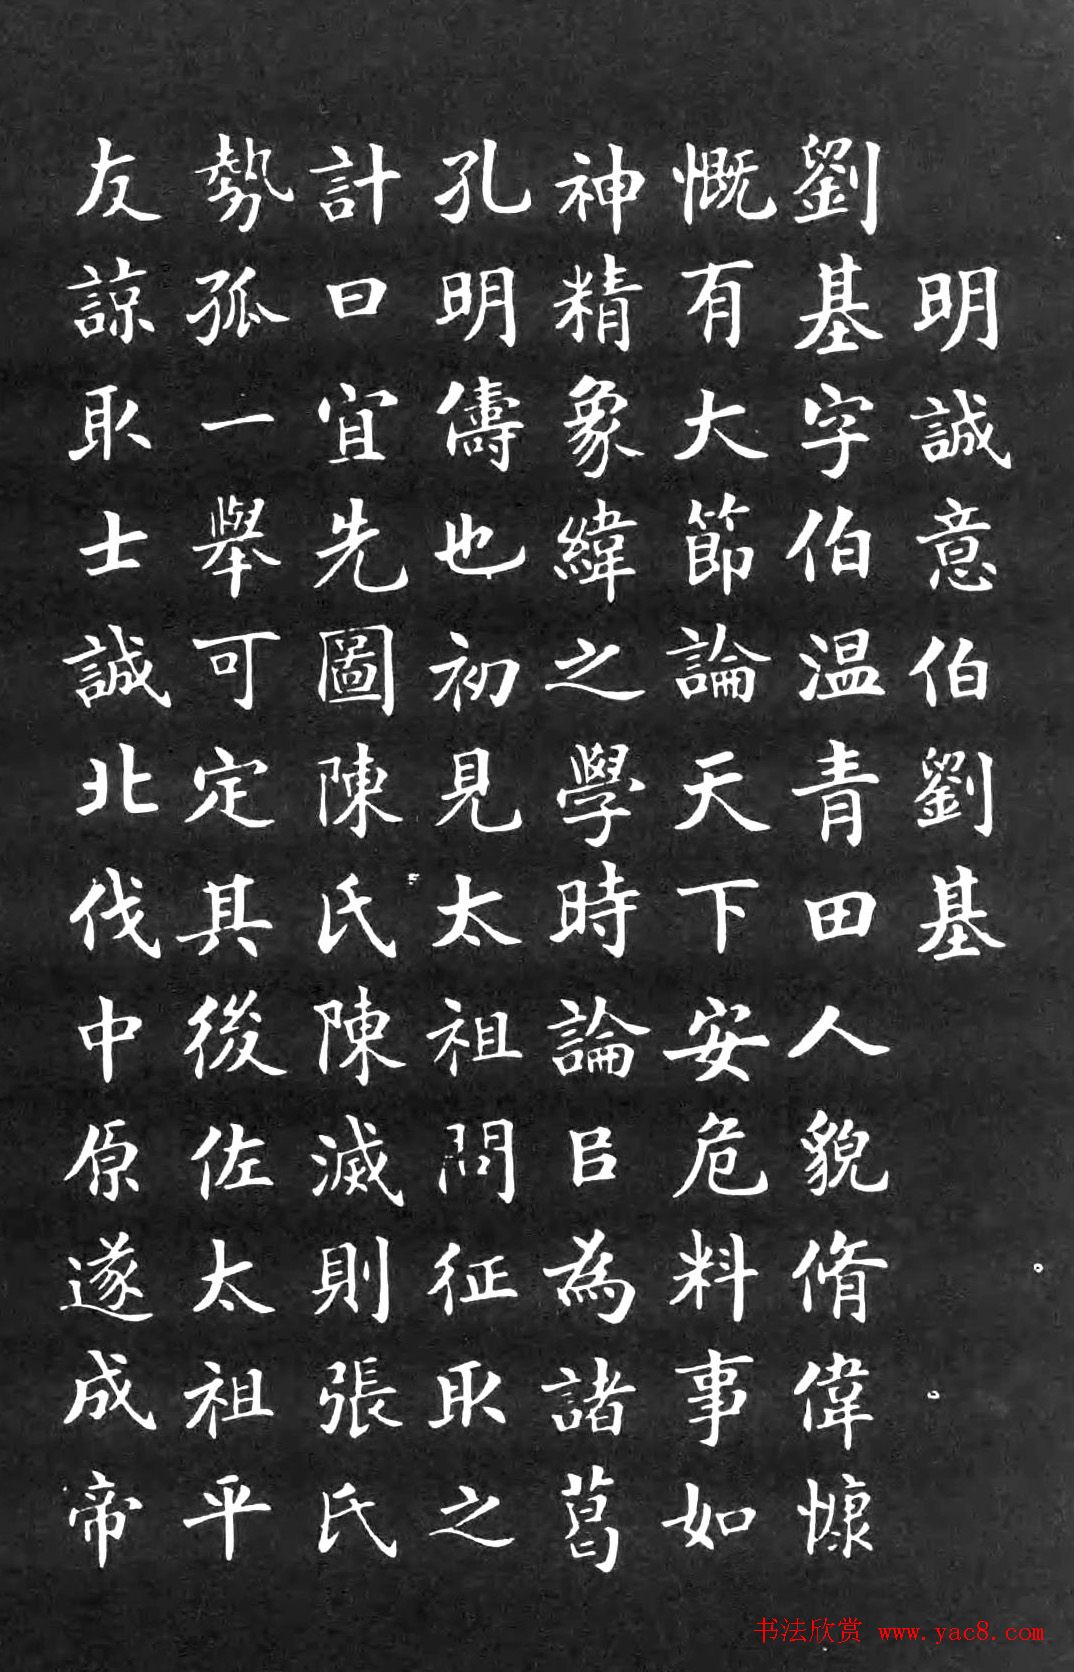 明誠意伯劉基
劉基字伯温青田人貌脩偉慷
慨有大節論天下安危料事如
神精象緯之學時論㠯為諸葛
孔明儔也初見太祖問征取之
計曰宜先圖陳氏陳滅則張氏
勢孤一舉可定其後佐太祖平
友諒取士誠北伐中原遂成帝
书法欣赏 www.yac8.com